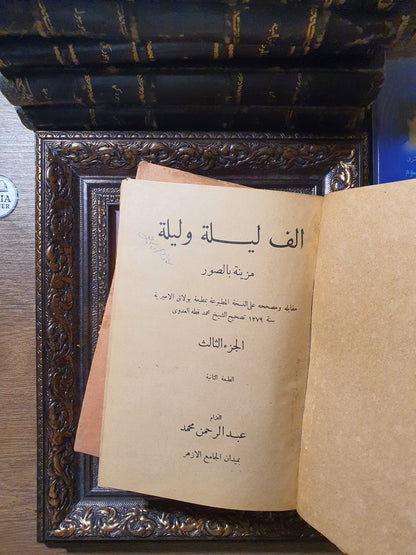 الف ليلة وليلة
مزينة بالصور
مقابلة ومصححة على النسخة المطبوعة بمطبعة بولاق الاميرية
سنة ١٢٧٩ تصحيح الشيخ محمد قطة العدوى
الجزء الثالث
الطبعة الثانية
التزام
عبد الرحمن محمد
بميدان الجامع الازهر
IA
ER